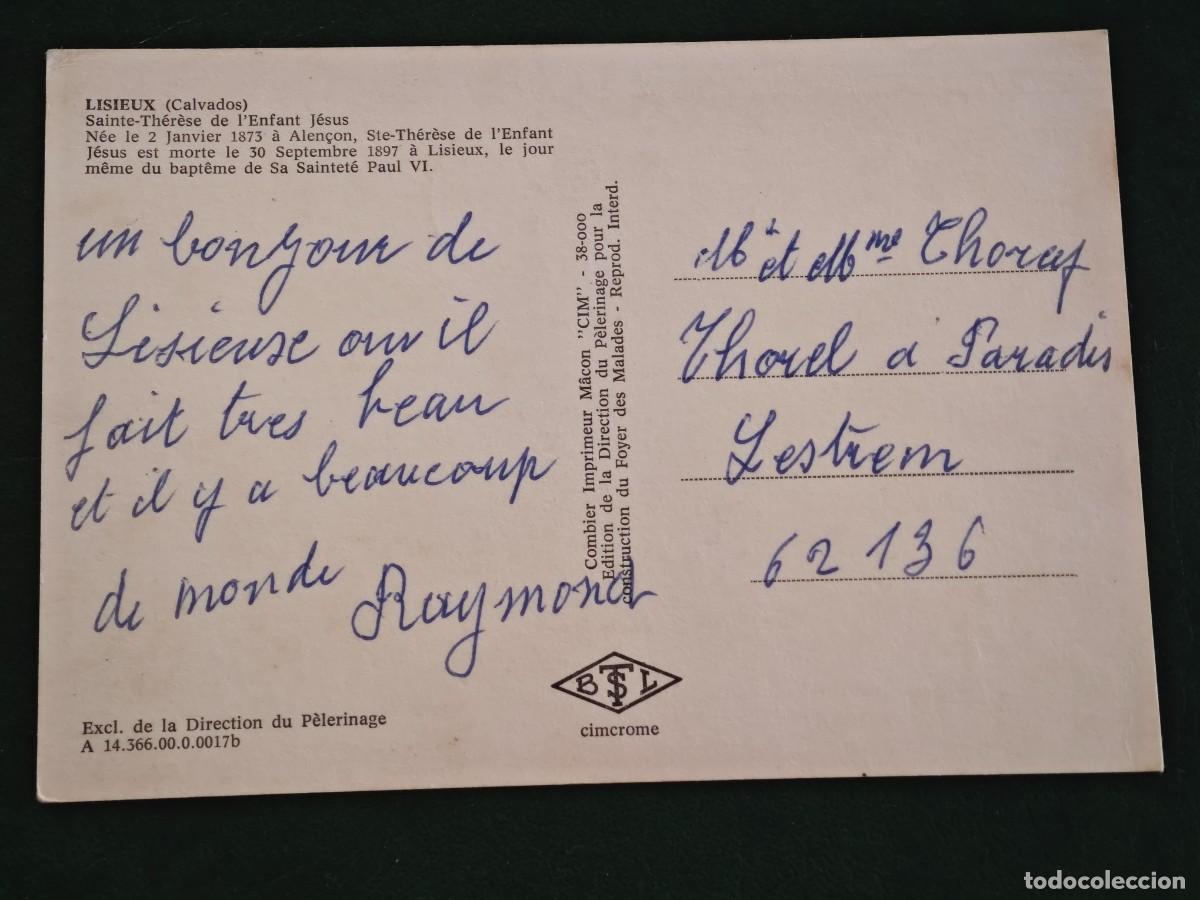 LISIEUX (Calvados)
Sainte-Thérèse de l'Enfant Jésus
Née le 2 Janvier 1873 à Alençon, Ste-Thérèse de l'Enfant
Jésus est morte le 30 Septembre 1897 à Lisieux, le jour
même du baptême de Sa Sainteté Paul VI.
un bonjour de
Lisieuse ou il
fait tres beau
et il y a beaucoup
de monde Raymond
Excl. de la Direction du Pèlerinage
A 14.366.00.0.0017b
Combier Imprimeur Mâcon "CIM" - 38-000
Edition de la Direction du Pèlerinage pour la
construction du Foyer des Malades - Reprod. Interd.
B TS L
cimcrome
et Mme
Thorel a Paradis
Lestrem
62136
todocoleccion